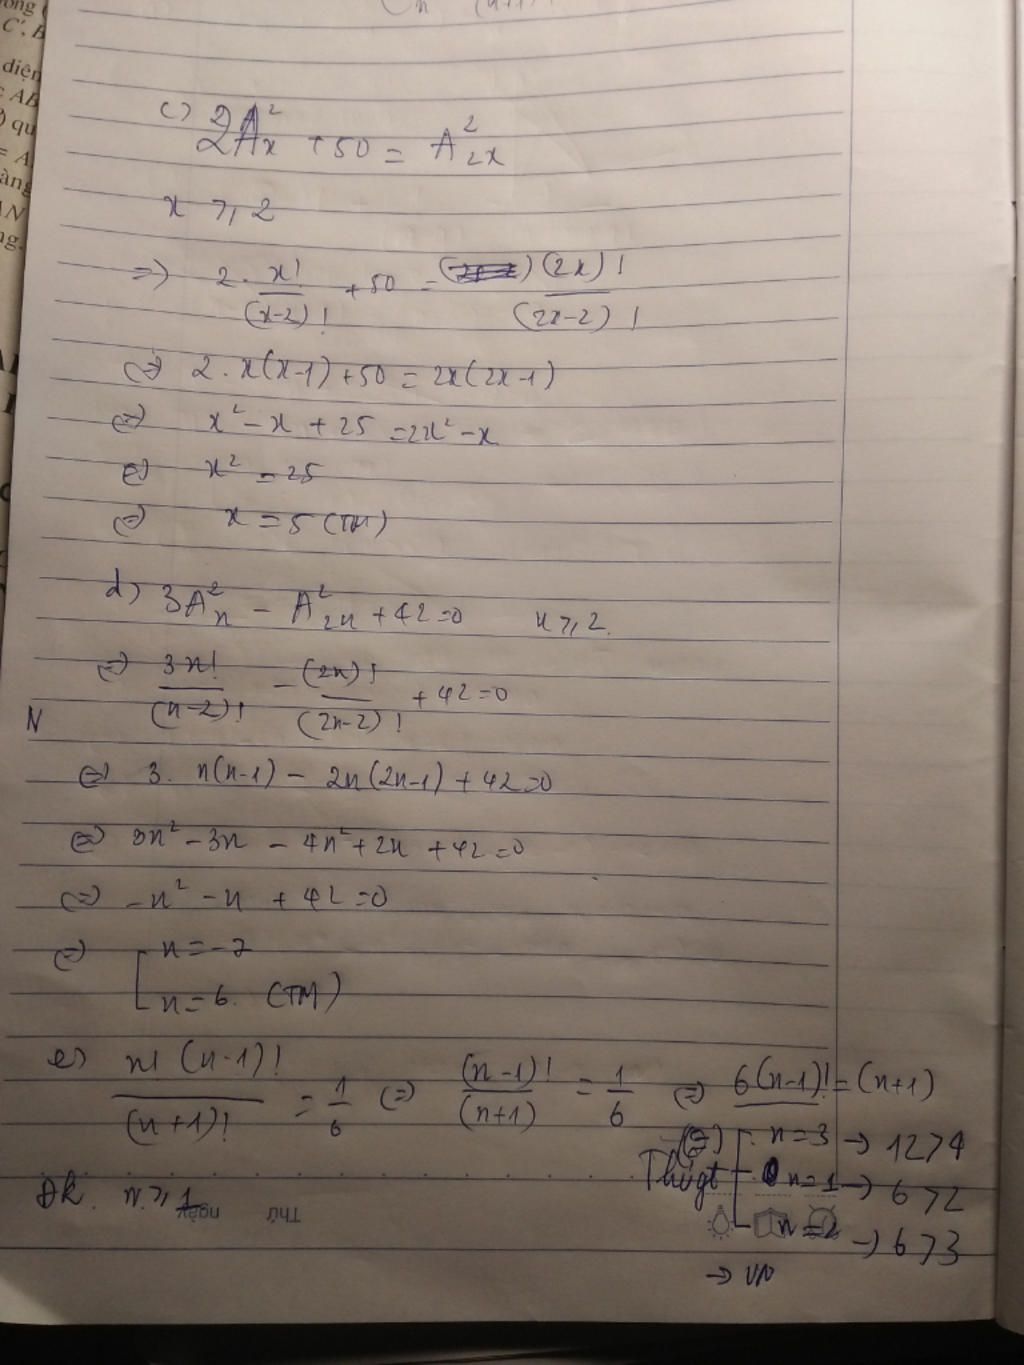 c) 2A²ₓ + 50 = A²₂ₓ
x ≥ 2
=> 2. x!/(x-2)! + 50 = (2x)!/(2x-2)!
<=> 2. x(x-1) + 50 = 2x(2x-1)
<=> x² - x + 25 = 2x² - x
<=> x² = 25
<=> x = 5 (TM)
d) 3A²ₙ - A²₂ₙ + 42 = 0 n ≥ 2.
<=> 3n!/(n-2)! - (2n)!/(2n-2)! + 42 = 0
N
<=> 3. n(n-1) - 2n(2n-1) + 42 = 0
<=> 3n² - 3n - 4n² + 2n + 42 = 0
<=> -n² - n + 42 = 0
<=> [ n = -7
n = 6. (TM)
e) n! (n-1)!/(n+1)! = 1/6 <=> (n-1)!/(n+1) = 1/6 <=> 6(n-1)! = (n+1)
n = 3 -> 12 > 4
n = 1 -> 6 > 2
n = 2 -> 6 > 3
ĐK n ≥ 1
Thứ ngày
-> VN
diện
AB
qu
= A